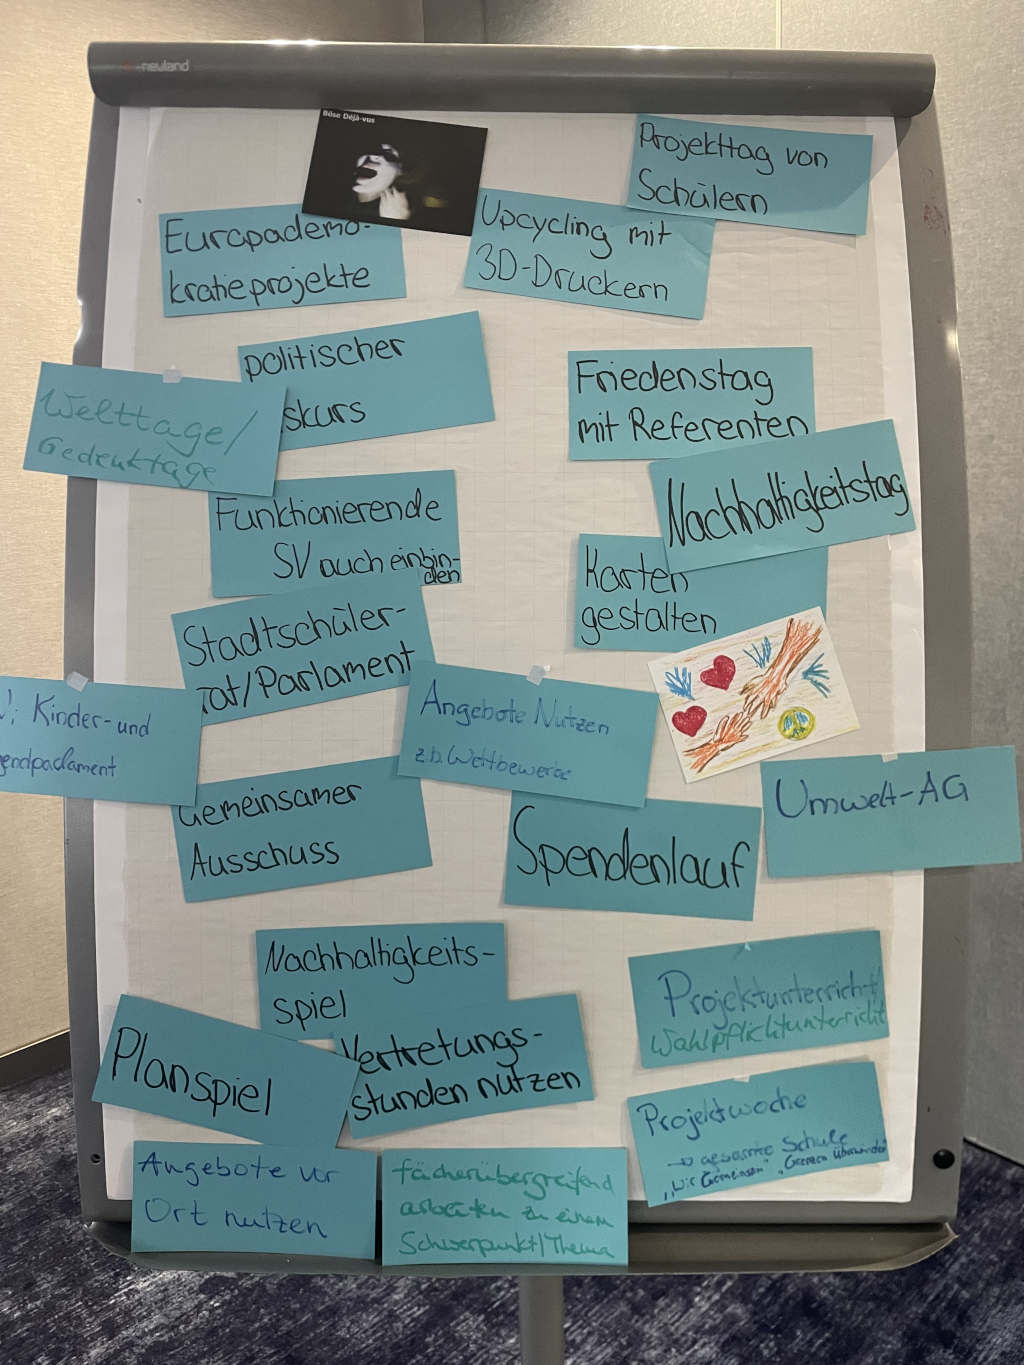 neuland
Böse Déjà-vus
Projekttag von
Schülern
Europademo-
kratieprojekte
Upcycling mit
3D-Druckern
politischer
skurs
Welttage/
Gedenktage
Friedenstag
mit Referenten
Nachhaltigkeitstag
Funktionierende
SV auch einbin-
den
Karten
gestalten
Stadtschüler-
rat/Parlament
Kinder- und
endparlament
Angebote Nutzen
z.b. Wettbewerbe
Gemeinsamer
Ausschuss
Spendenlauf
Umwelt-AG
Nachhaltigkeits-
spiel
Projektunterricht
Wahlpflichtunterricht
Planspiel
Vertretungs-
stunden nutzen
Projektwoche
→ gesamte Schule
"Wir Gemeinsam" "Grenzen überwinden
Angebote vor
Ort nutzen
fächerübergreifend
arbeiten zu einem
Schwerpunkt/Thema